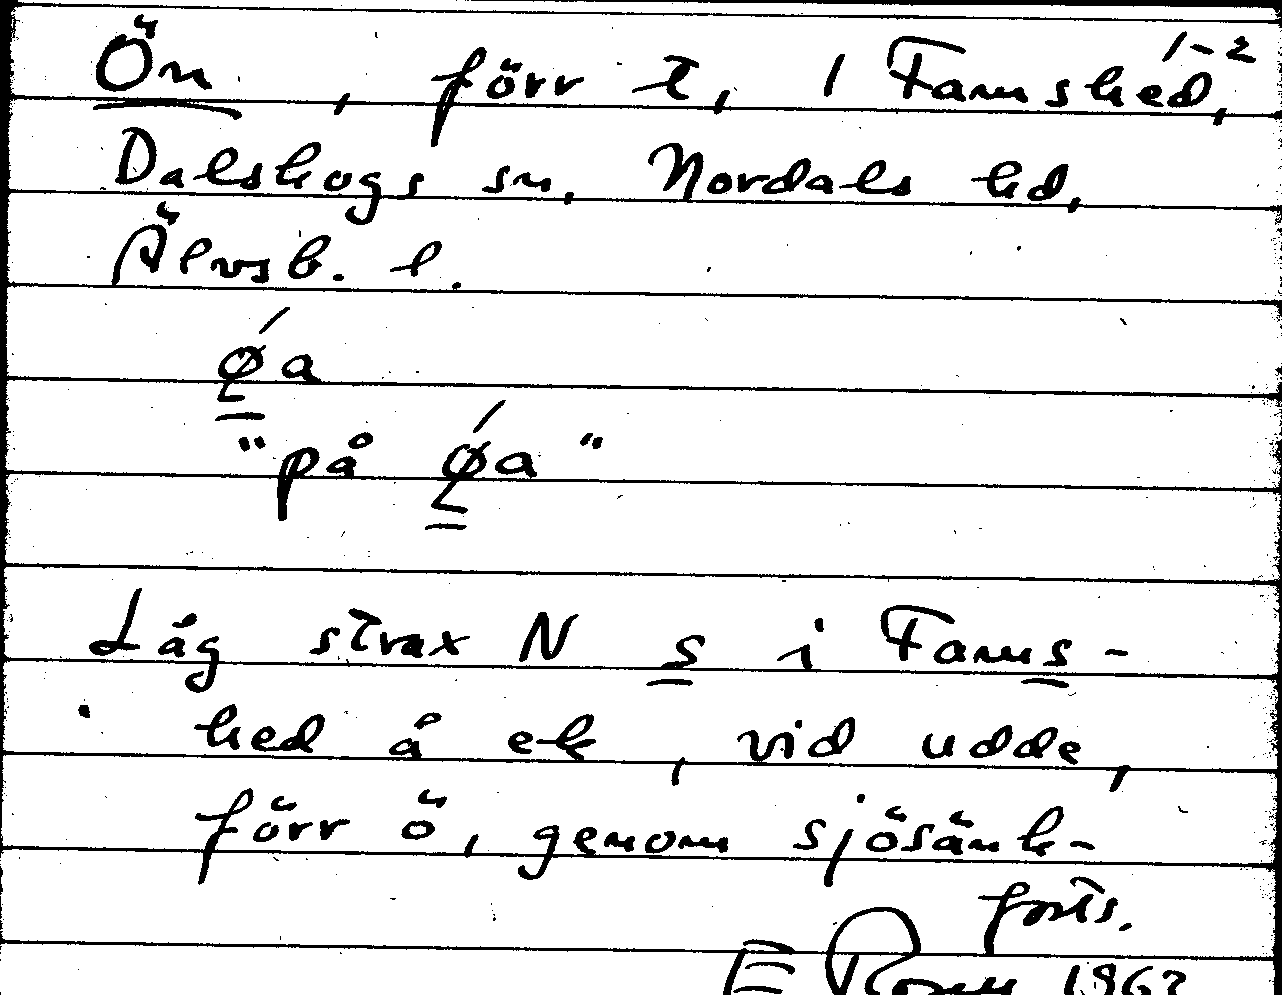 Ön, förr t, 1 Famshed, 1-2
Dalskogs sn, Nordals hd,
Älvsb. l.
ǿa
"på ǿa"
Låg strax N s i Fams-
hed å ek, vid udde,
förr ö, genom sjösänk-
forts.
E